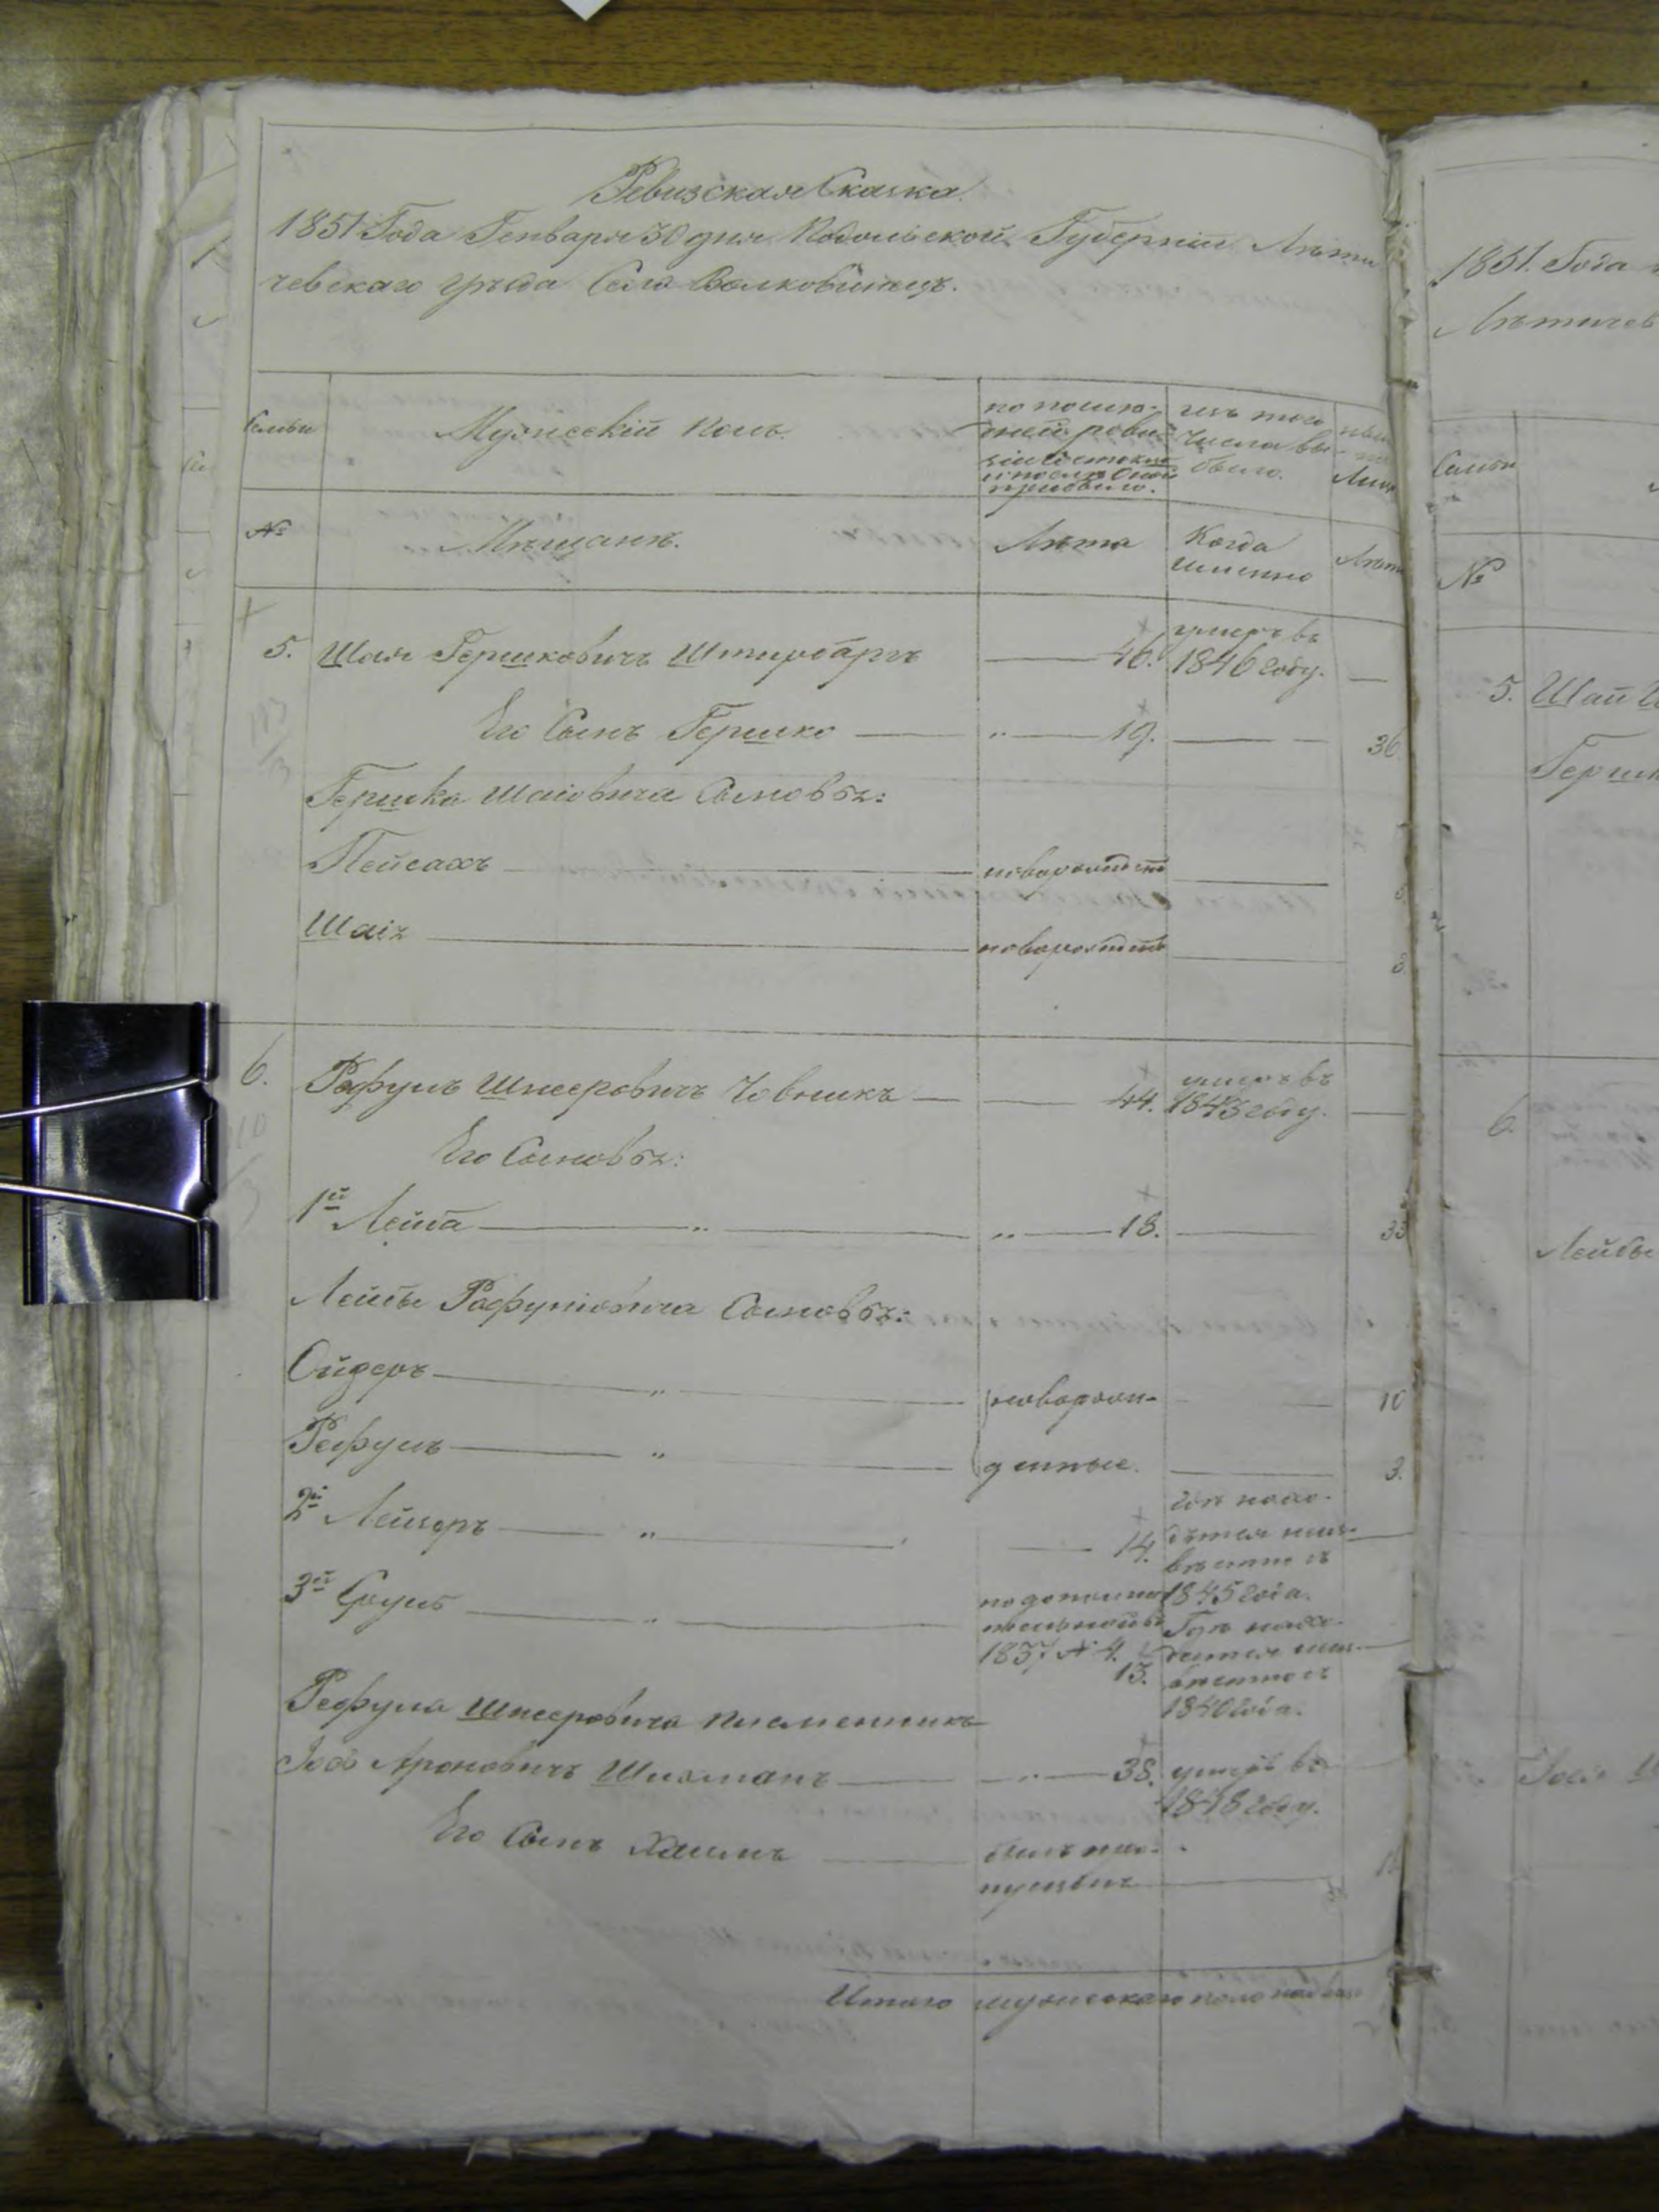 Ревизская Сказка.
1851 Года Генваря 30 дня Подольской Губернiи Лѣти
чевскаго уѣзда Села Волковинецъ.
Семьи
Мужескiй полъ.
по послѣ-
дней реви-
зiи состояло
и послѣ оной
прибыло.
изъ того
числа вы
было.
№
Мѣщанъ.
Лѣта
Когда
именно
Лѣта
5. Шая Гершковичъ Штирбаргъ 46. умеръ въ
1846 году.
Его Сынъ Гершко 19. 36
Гершка Шаiовича Сыновья:
Пейсахъ новорожденъ
Шаiя новорожденъ
6. Рафулъ Шнееровичъ Човникъ 44. умеръ въ
1843 году.
Его Сыновья:
1й Лейба 18. 33
Лейбы Рафуловича Сыновья:
Ойзеръ новорож- 10
Рафулъ денные. 3.
2й Лейзоръ 14. гдѣ нахо-
дится неиз-
вѣстно съ
1845 года.
3й Сруль по дополни
тельной
1837 № 4.
13.
Гдѣ нахо-
дится неиз-
вѣстно съ
1840 года.
Рафула Шнееровича племенникъ
Iось Ароновичъ Шихманъ 38. умеръ въ
1848 году.
Его Сынъ Хаимъ былъ про-
пущенъ
Итого мужескаго пола налицо
1851. Года
Лѣтичев
Семьи
№
5. Шаи
Гершк
6.
Лейбы